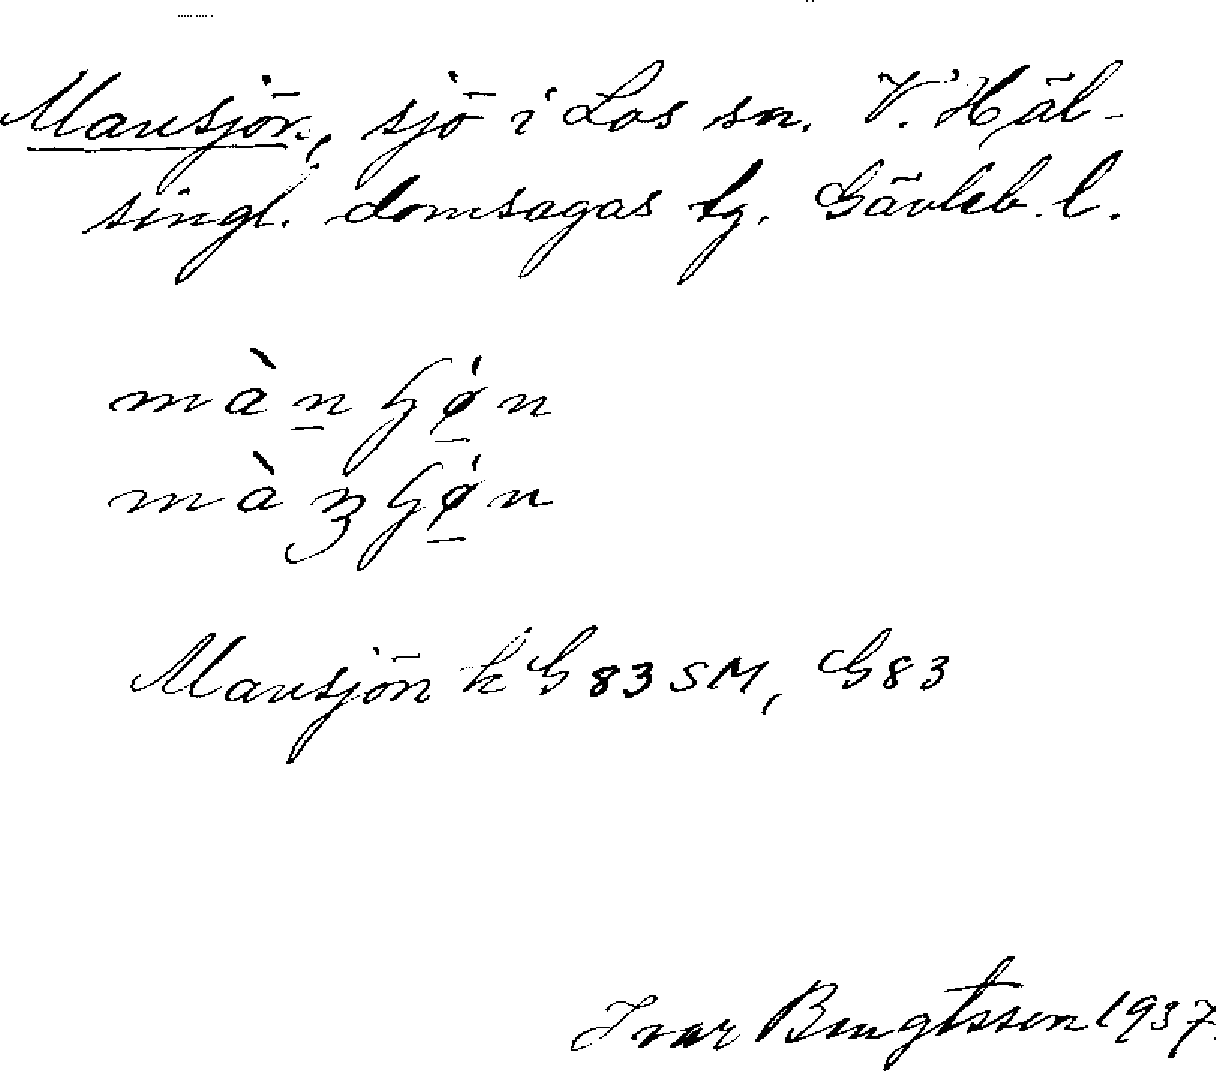 Mansjön, sjö i Los sn. V. Häl-
singl. domsagas tg. Gävleb. l.
Mansjön k G 83 SM, G 83
Ivar Bengtsson 1937.